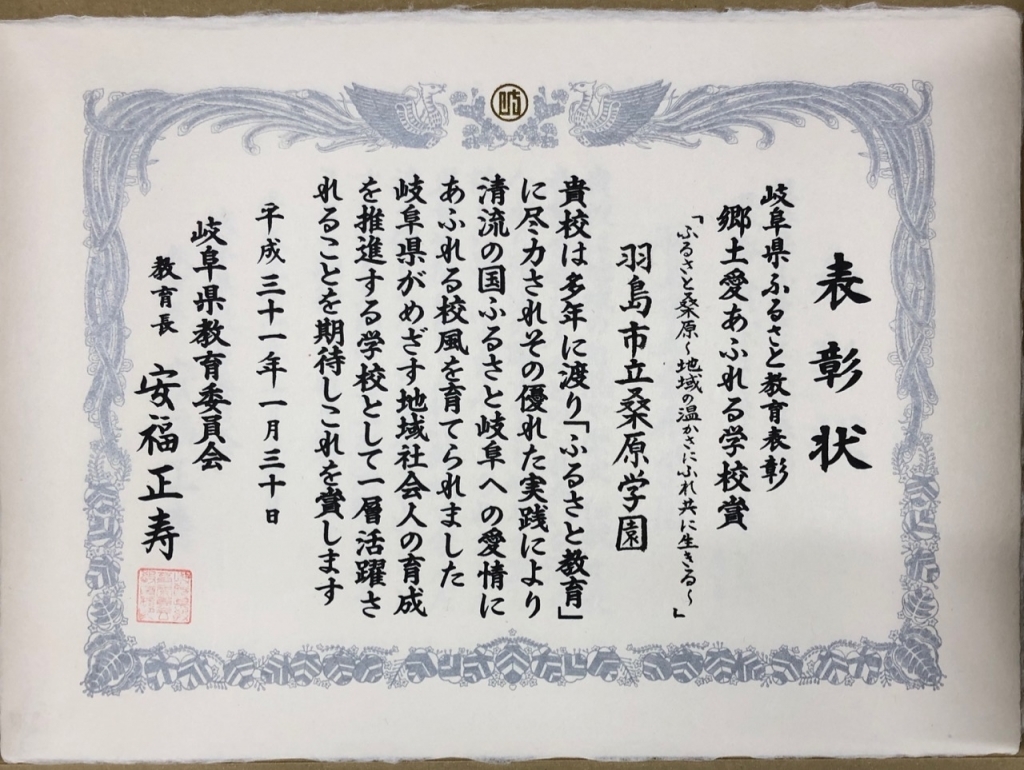 表彰状
岐阜県ふるさと教育表彰
郷土愛あふれる学校賞
「ふるさと桑原~地域の温かさにふれ共に生きる~」
羽島市立桑原学園
貴校は多年に渡り「ふるさと教育」
に尽力されその優れた実践により
清流の国ふるさと岐阜への愛情に
あふれる校風を育てられました
岐阜県がめざす地域社会人の育成
を推進する学校として一層活躍さ
れることを期待しこれを賞します
平成三十一年一月三十日
岐阜県教育委員会
教育長 安福正寿